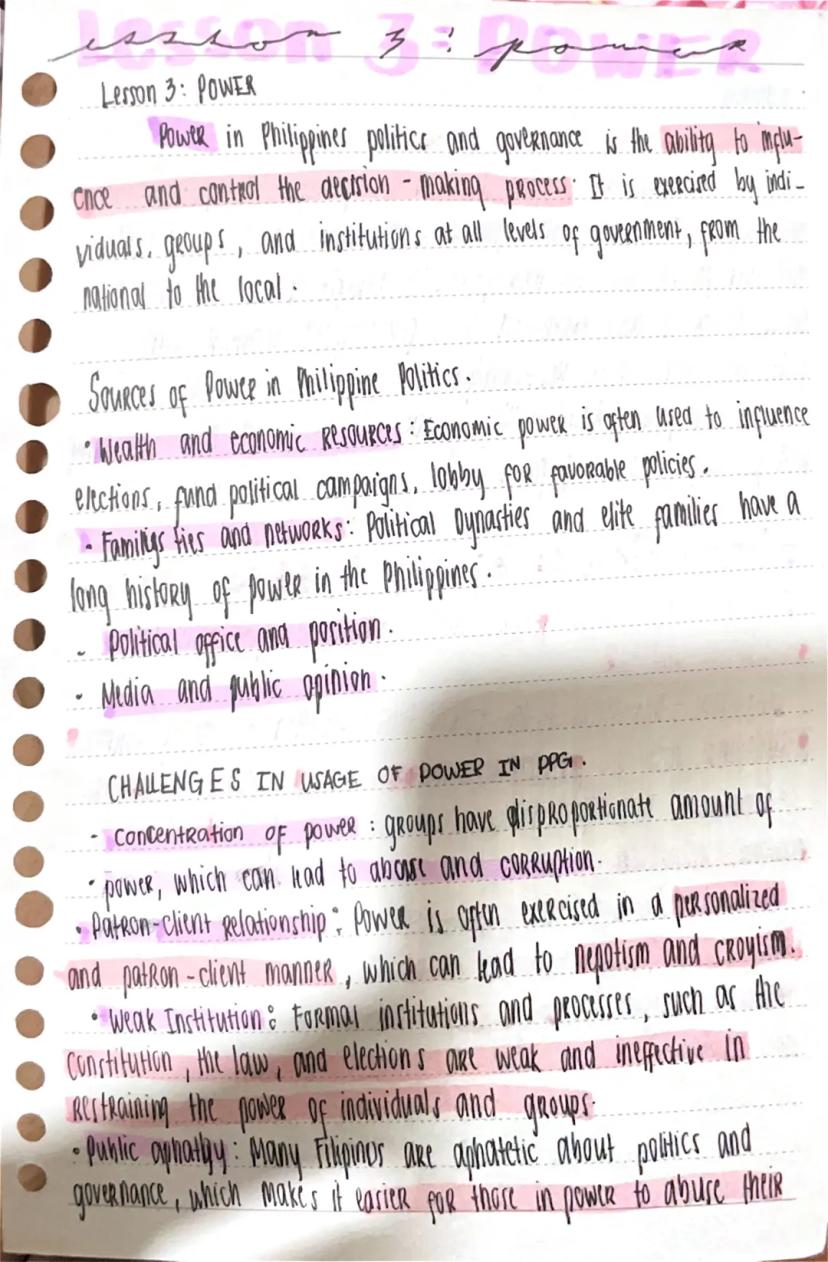 Lesson 3: POWER
Lesson 3: POWER
Power in Philippines politics and governance is the ability to influ-
ence and control the decision-making process. It is exercised by indi-
viduals, groups, and institutions at all levels of government, from the
national to the local.
Sources of Power in Philippine Politics.
• Wealth and economic resources: Economic power is often used to influence
elections, fund political campaigns, lobby for favorable policies.
• Familiys ties and networks: Political Dynasties and elite families have a
long history of power in the Philippines.
- Political office and position.
- Media and public opinion.
CHALLENGES IN USAGE OF POWER IN PPG.
- Concentration of power: groups have disproportionate amount of
• power, which can lead to abuse and corruption.
• Patron-client relationship: Power is often exercised in a personalized
and patron-client manner, which can lead to nepotism and croyism.
• Weak Institution: Formal institutions and processes, such as the
constitution, the law, and elections are weak and ineffective in
restraining the power of individuals and groups.
• Public aphathy: Many Filipinos are aphatetic about politics and
governance, which makes it easier for those in power to abuse their